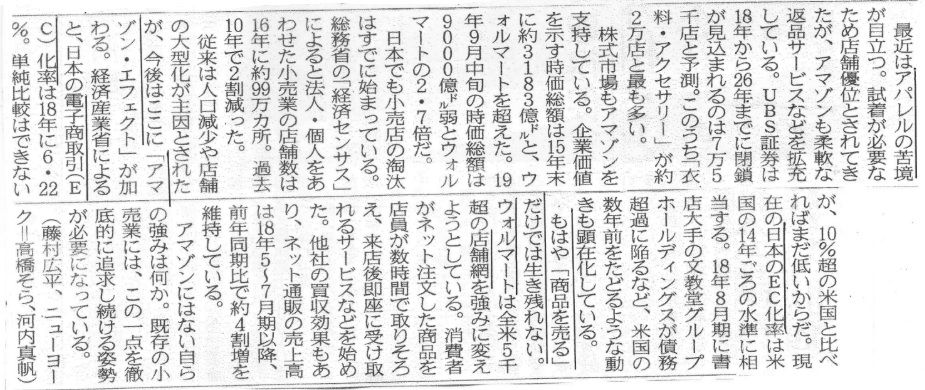 最近はアパレルの苦境
が目立つ。試着が必要な
ため店舗優位とされてき
たが、アマゾンも柔軟な
返品サービスなどを拡充
している。UBS証券は
18年から26年までに閉鎖
が見込まれるのは7万5
千店と予測。このうち「衣
料・アクセサリー」が約
2万店と最も多い。
株式市場もアマゾンを
支持している。企業価値
を示す時価総額は15年末
に約3183億㌦と、ウ
ォルマートを超えた。19
年9月中旬の時価総額は
9000億㌦弱とウォル
マートの2・7倍だ。
日本でも小売店の淘汰
はすでに始まっている。
総務省の「経済センサス」
によると法人・個人をあ
わせた小売業の店舗数は
16年に約99万カ所。過去
10年で2割減った。
従来は人口減少や店舗
の大型化が主因とされた
が、今後はここに「アマ
ゾン・エフェクト」が加
わる。経済産業省による
と、日本の電子商取引(E
C)化率は18年に6・22
%。単純比較はできない
が、10%超の米国と比べ
ればまだ低いからだ。現
在の日本のEC化率は米
国の14年ごろの水準に相
当する。18年8月期に書
店大手の文教堂グループ
ホールディングスが債務
超過に陥るなど、米国の
数年前をたどるような動
きも顕在化している。
もはや「商品を売る」
だけでは生き残れない。
ウォルマートは全米5千
超の店舗網を強みに変え
ようとしている。消費者
がネット注文した商品を
店員が数時間で取りそろ
え、来店後即座に受け取
れるサービスなどを始め
た。他社の買収効果もあ
り、ネット通販の売上高
は18年5~7月期以降、
前年同期比で約4割増を
維持している。
アマゾンにはない自ら
の強みは何か。既存の小
売業には、この一点を徹
底的に追求し続ける姿勢
が必要になっている。
(藤村広平、ニューヨー
ク=高橋そら、河内真帆)